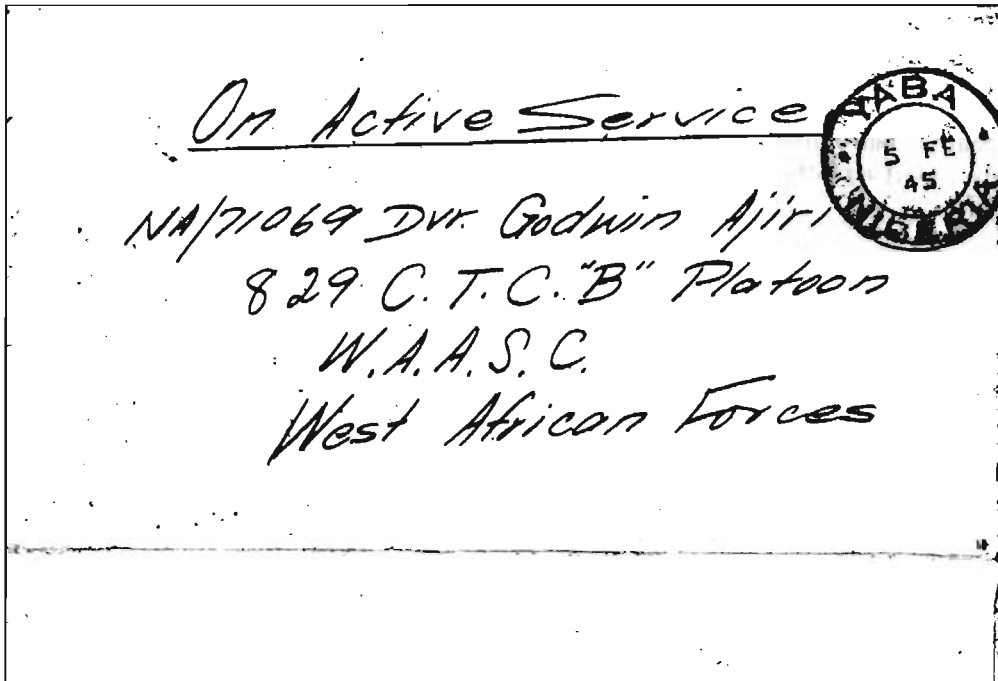 On Active Service
YABA
5 FE
45
NIGERIA
NA/71069 Dvr. Godwin Ajiri
829 C.T.C. "B" Platoon
W.A.A.S.C.
West African Forces